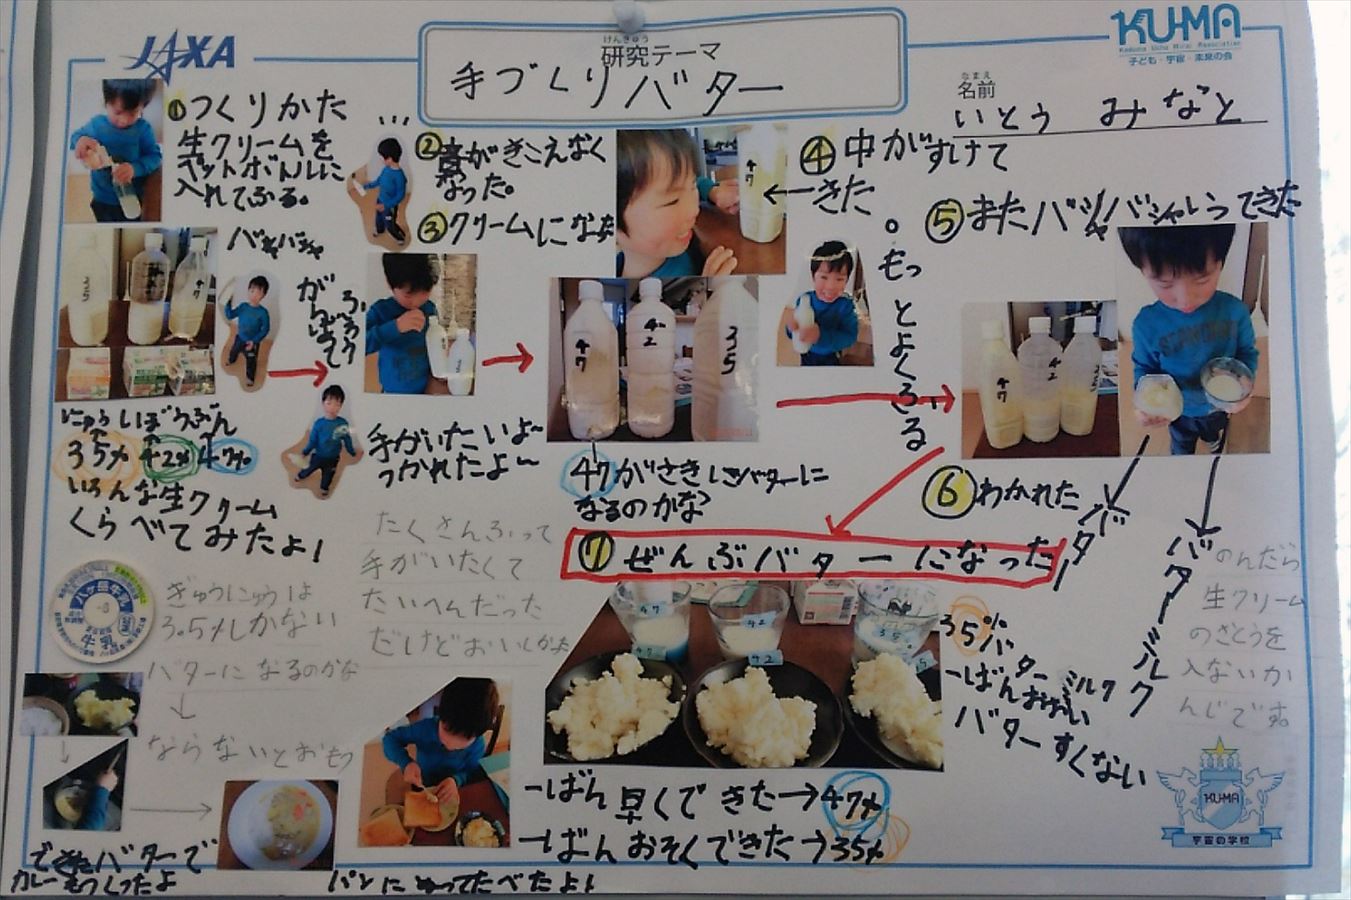 JAXA
けんきゅう
研究テーマ
手づくりバター
KU-MA
Kodomo Uchu Mirai Association
子ども・宇宙・未来の会
なまえ
名前
いとう みなと
①つくりかた
生クリームを
ペットボトルに
入れてふる。
...
②音がきこえなく
なった。
③クリームになった
④中がすけて
←きた
。もっとよくふる
⑤またバシャバシャいってきた
バシャバシャ
がんばって
ふろう
35
42
47
にゅうしぼうぶん
35% 42% 47%
いろんな生クリーム
くらべてみたよ!
手がいたいよ~
つかれたよ~
47
42
35
47がさきにバターに
なるのかな?
47
42
⑥わかれた
バター
バターミルク
⑦ぜんぶバターになった
たくさんふって
手がいたくて
たいへんだった
だけどおいしかった
のんだら
生クリーム
のさとうを
入ないか
んじです。
ぎゅうにゅうは
3.5%しかない
バターになるのかな
↓
ならないとおもう
八ヶ岳牛乳
牛乳
47
42
35
35%
バターミルク
一ばんおおい
バターすくない
一ばん早くできた→47%
一ばんおそくできた→35%
できたバターで
カレーもつくったよ
パンにぬってたべたよ!
KU-MA
宇宙の学校